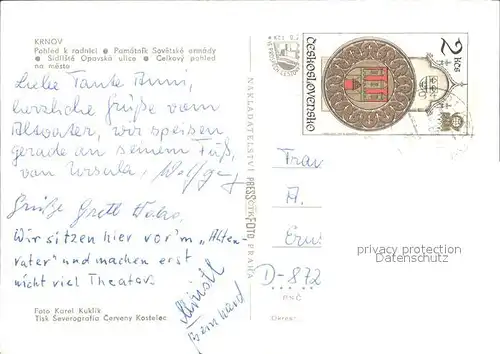 KRNOV
Pohled k radnici ● Památník Sovětské armády
● Sídliště Opavská ulice ● Celkový pohled
na město
Liebe Tante Anni,
herzliche Grüße vom
Altvater, wir speisen
gerade an seinem Fuß,
von Ursula, Wolfgang
Grüße Gretl
Wir sitzen hier vor'm "Alten-
vater" und machen erst
nicht viel Theater.
Christl
Bernhard
Foto Karel Kuklík
Tisk Severografia Červený Kostelec
NAKLADATELSTVÍ PRESSFOTO PRAHA
ČESKOSLOVENSKO
2 Kčs
Frau
A.
D-872
PSČ
Okres:
privacy protection
Datenschutz